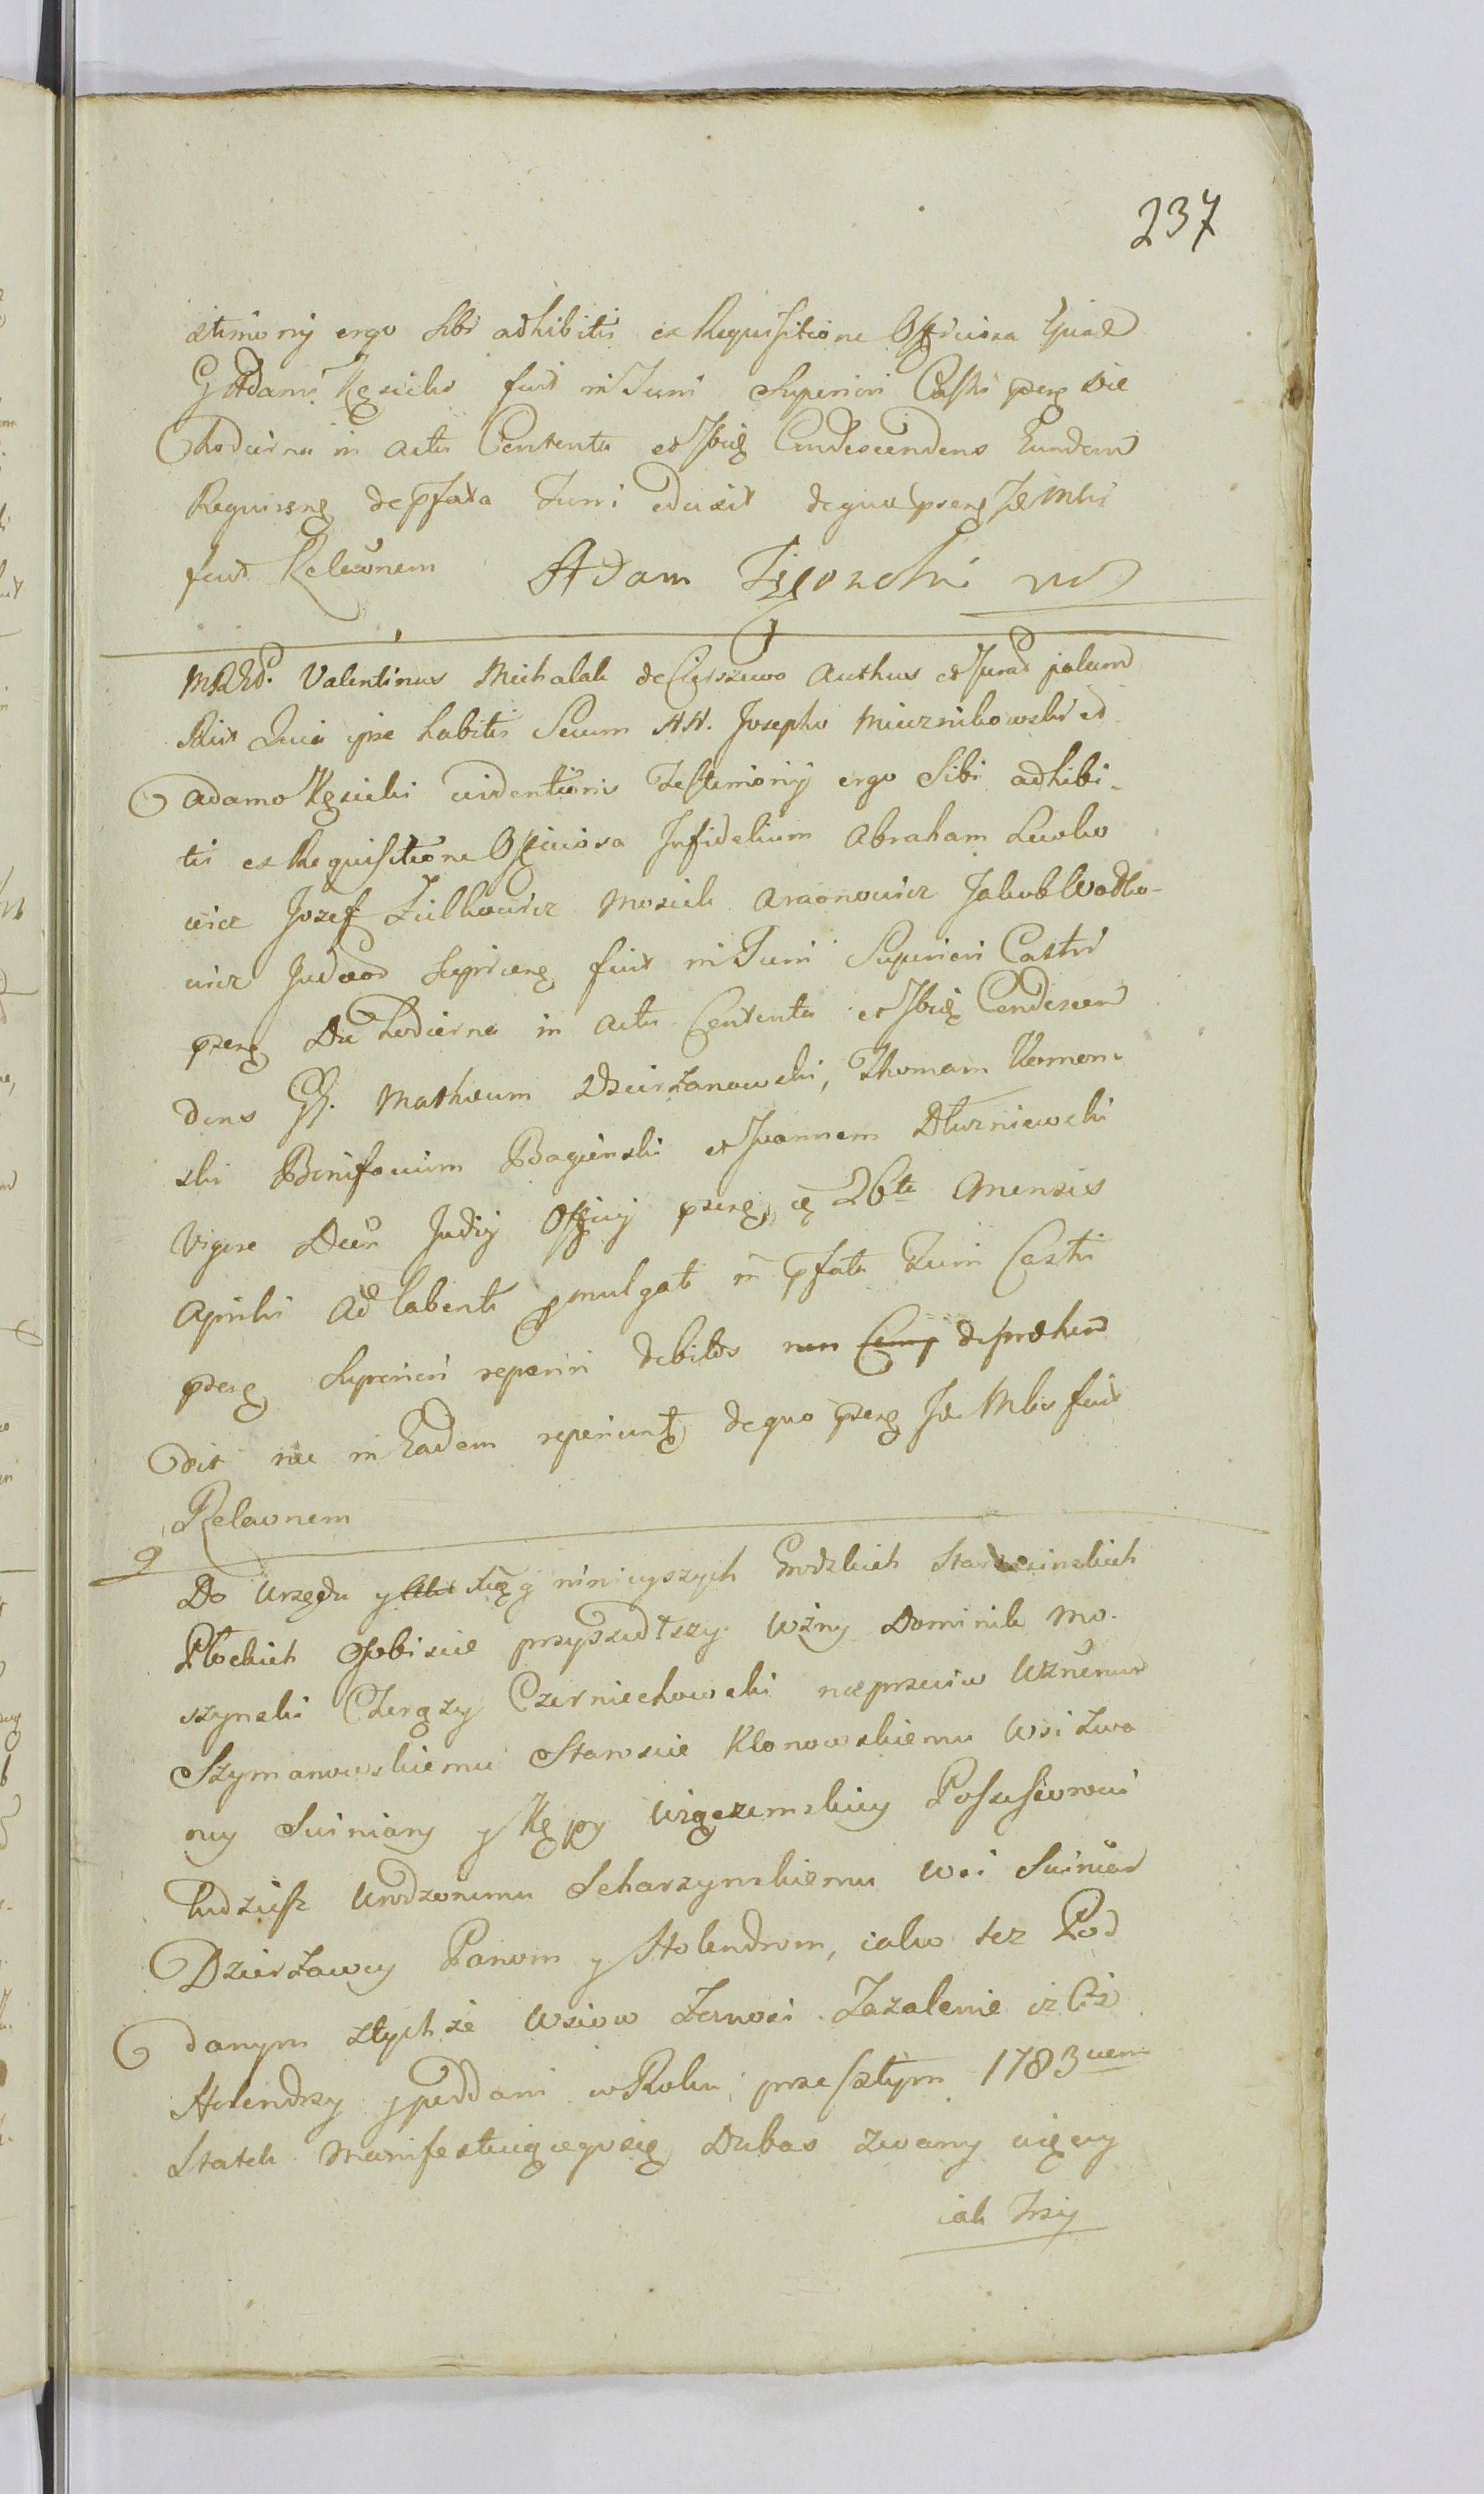 237
stimonij ergo Sibi adhibitis ex Requisitione Officiosa
G Adami Kęsicki fuit in Turri Superiori Castri praeñ die
hodierna in actu Contenta et Ibidẽ Condescendens Eundem
de p̃fata Turri eduxit de quo praeñ Id Mlis
fecit Relãonem Adam
Valentinus Michalak de Authus et Jurad palam
Quia ipse habitis Secum NN. Josepho Miecznikowski et
Adamo Kęsicki Testimonij ergo Sibi adhibi-
tis ex Requisitione Officiosa Infidelium Abraham Lewko
wicz Jozef Zielkowicz Mosiek Araonowicz Jakub Wodko-
wicz Judæor fuit in Turri Superiori Castri
praeñ Die hodierna in actu Contenta et Ibidẽ Condescen
dens GG. Matheum Dzierżanowski, Thomam Komoro
ski Bonifacium Bagienski et Joannem Dłuzniewski
Vigore Judicij Officij praeñ 26te Mensis
Aprilis Ad labenti pmulgati in p̃fata Turri Castri
praeñ Superiori reperiri debitos non Comp deprehen
dit nec in Eadem reperiunt, de quo praeñ Id Mlis fecit
Relaonem
Do Urzędu y Akt Xiąg ninieyszych Grodzkich Starościnskich
Płockich Osobiscie przyszedłszy Wżny Dominik Mo-
szynski Chorązy Czerniechowski naprzeciw Wżnemu
Szymanowskiemu Staroscie Klonowskiemu Wsi Zwa
ney Suiniary y Kępy Wiączemskiey Possessorowi
tudziesz Urodzonemu Scharzynskiemu Wsi Suiniar
Dzierżawcy Panom y Holendrom, iako tez Pod
danym ztychże Wsiow Zanosi Zażalenie iż Ciż
Holendrzy y poddani w Roku przeszłym 1783cem
Statek Manifestuiącego się Dubas zwany więcey
iak Trzy